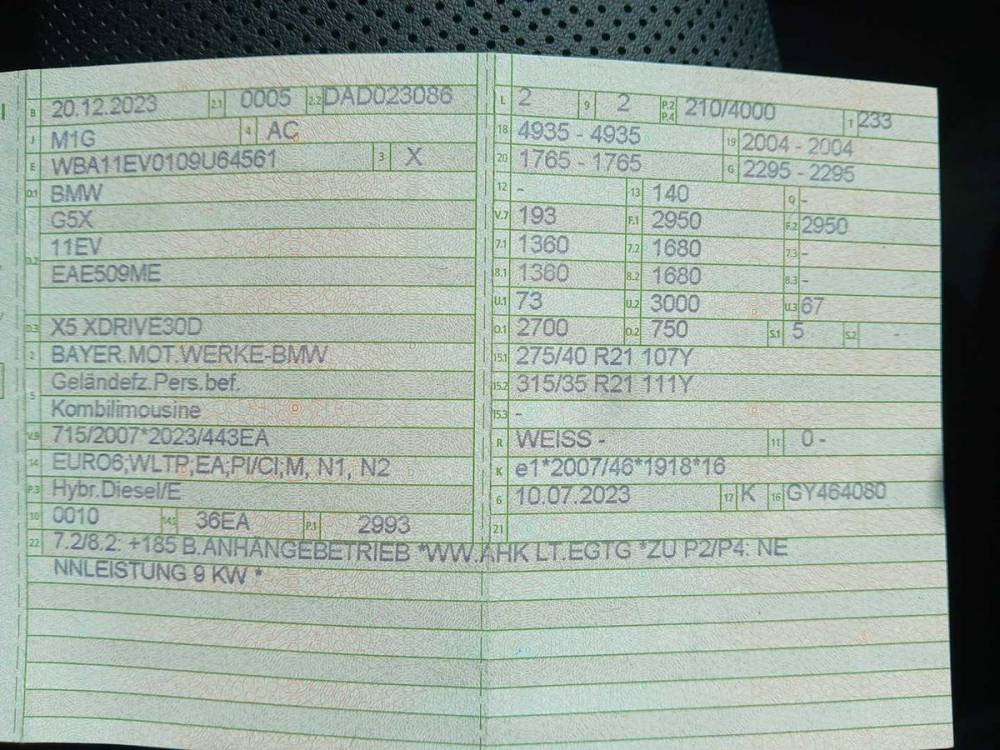 B 20.12.2023 2.1 0005 2.2 DAD023086
J M1G 4 AC
E WBA11EV0109U64561 3 X
D.1 BMW
G5X
D.2 11EV
EAE509ME
D.3 X5 XDRIVE30D
2 BAYER.MOT.WERKE-BMW
5 Geländefz.Pers.bef.
Kombilimousine
V.9 715/2007*2023/443EA
14 EURO6;WLTP;EA;PI/CI;M, N1, N2
P.3 Hybr.Diesel/E
10 0010 14.1 36EA P.1 2993
L 2 9 2 P.2 P.4 210/4000 T 233
18 4935 - 4935 19 2004 - 2004
20 1765 - 1765 G 2295 - 2295
12 - 13 140 Q -
V.7 193 F.1 2950 F.2 2950
7.1 1360 7.2 1680 7.3 -
8.1 1360 8.2 1680 8.3 -
U.1 73 U.2 3000 U.3 67
O.1 2700 O.2 750 S.1 5 S.2 -
15.1 275/40 R21 107Y
15.2 315/35 R21 111Y
15.3 -
R WEISS - 11 0 -
K e1*2007/46*1918*16
6 10.07.2023 17 K 16 GY464080
21
22 7.2/8.2: +185 B.ANHÄNGEBETRIEB *WW.AHK LT.EGTG *ZU P2/P4: NE
NNLEISTUNG 9 KW *